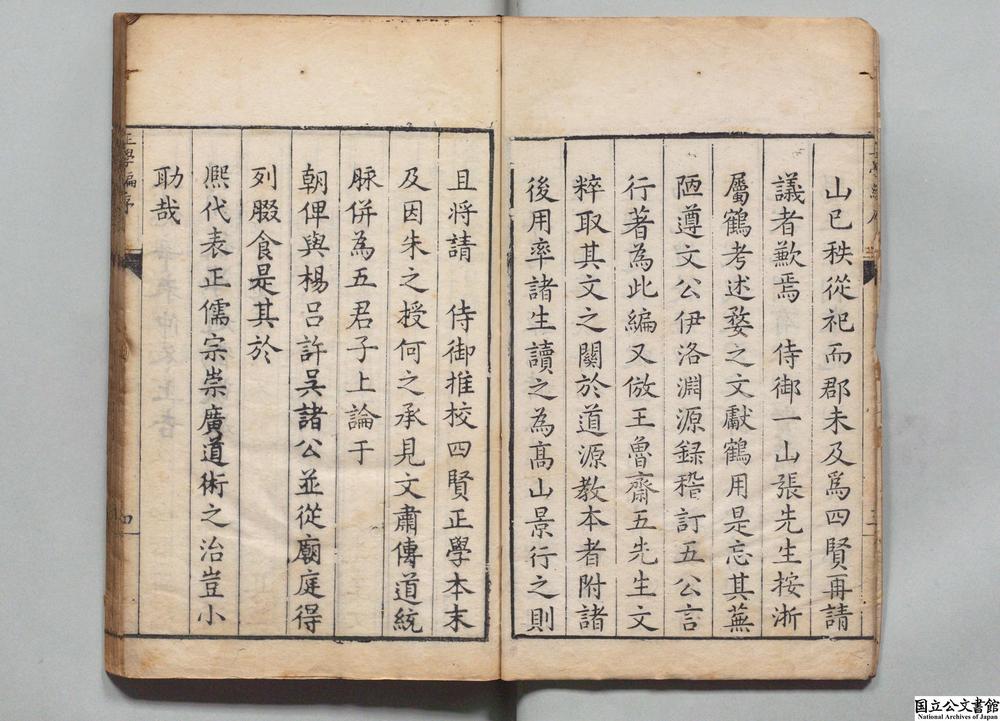 山已秩從祀而郡未及爲四賢再請
議者歉焉 侍御一山張先生按浙
屬鶴考述婺之文獻鶴用是忘其蕪
陋遵文公伊洛淵源錄稽訂五公言
行著為此編又倣王魯齋五先生文
粹取其文之關於道源教本者附諸
後用率諸生讀之為高山景行之則
且將請 侍御推校四賢正學本末
及因朱之授何之承見文肅傳道統
脉併為五君子上論于
朝俾與楊呂許吳諸公並從廟庭得
列腏食是其於
熈代表正儒宗崇廣道術之治豈小
助哉
正學編序
四
国立公文書館
National Archives of Japan